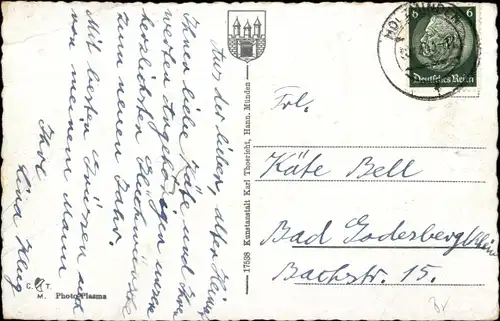 Aus der lieben, alten Heimat
Ihnen liebe Käte und Ihren
werten Angehörigen unsere
herzlichsten Glückwünsche
zum neuen Jahre.
Mit besten Grüssen auch
von meinem Mann
Ihre
Lina Klug
C. T.
M. Photo-Plasma
17538 Kunstanstalt Karl Thoericht, Hann. Münden
6 6
Deutsches Reich
Frl.
Käte Bell
Bad Godesberg/Rhein
Bachstr. 15.